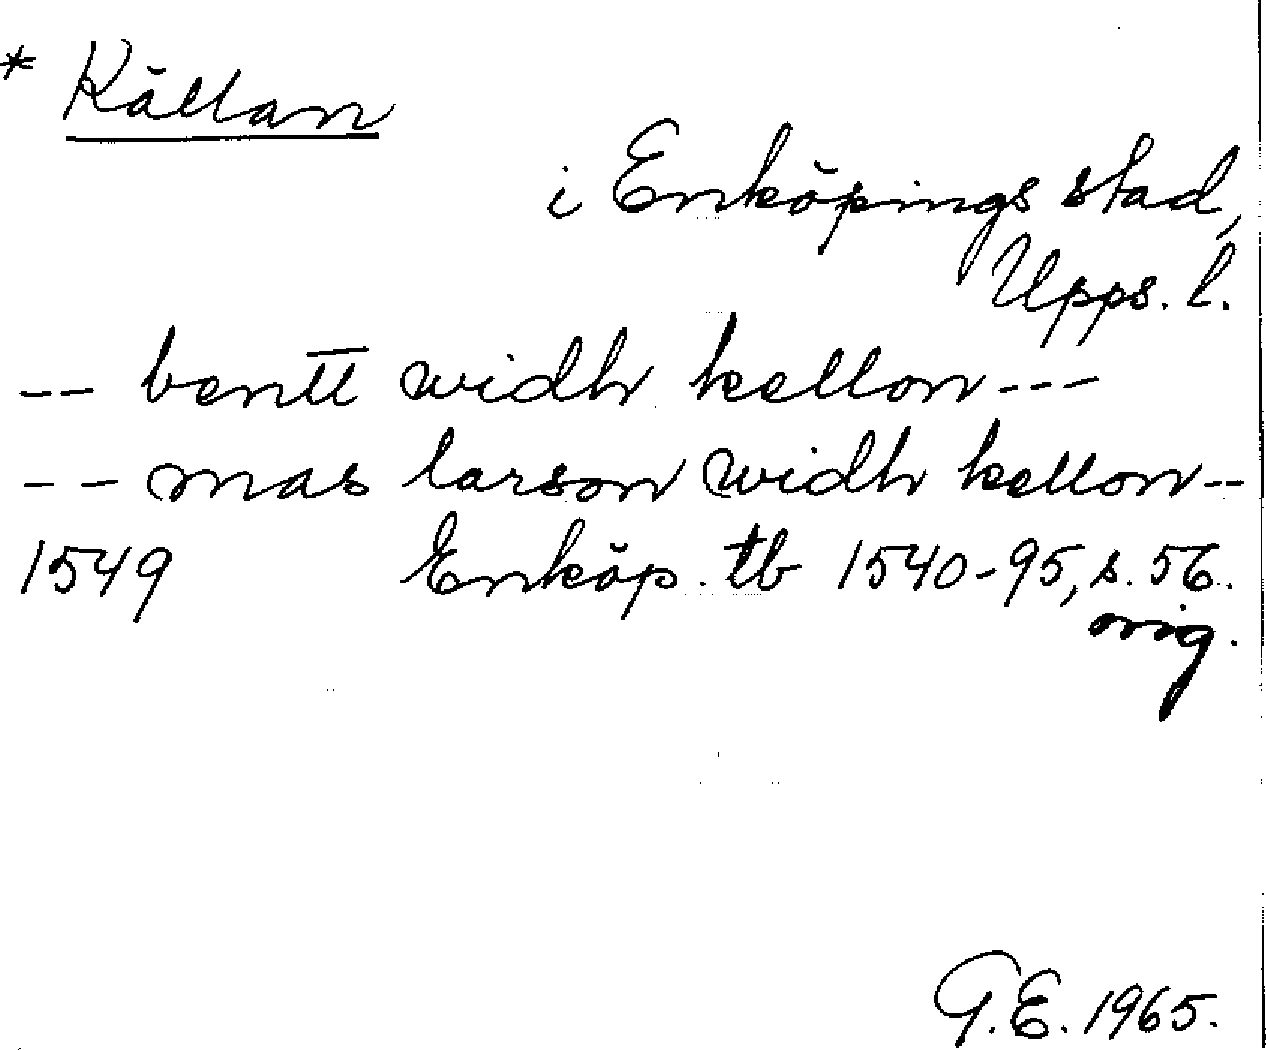 * Källan
i Enköpings stad,
Upps. l.
-- bentt̅ widh kellon ---
-- mas larson widh kellon --
1549 Enköp. tb 1540-95, s. 56.
orig.
G.E. 1965.